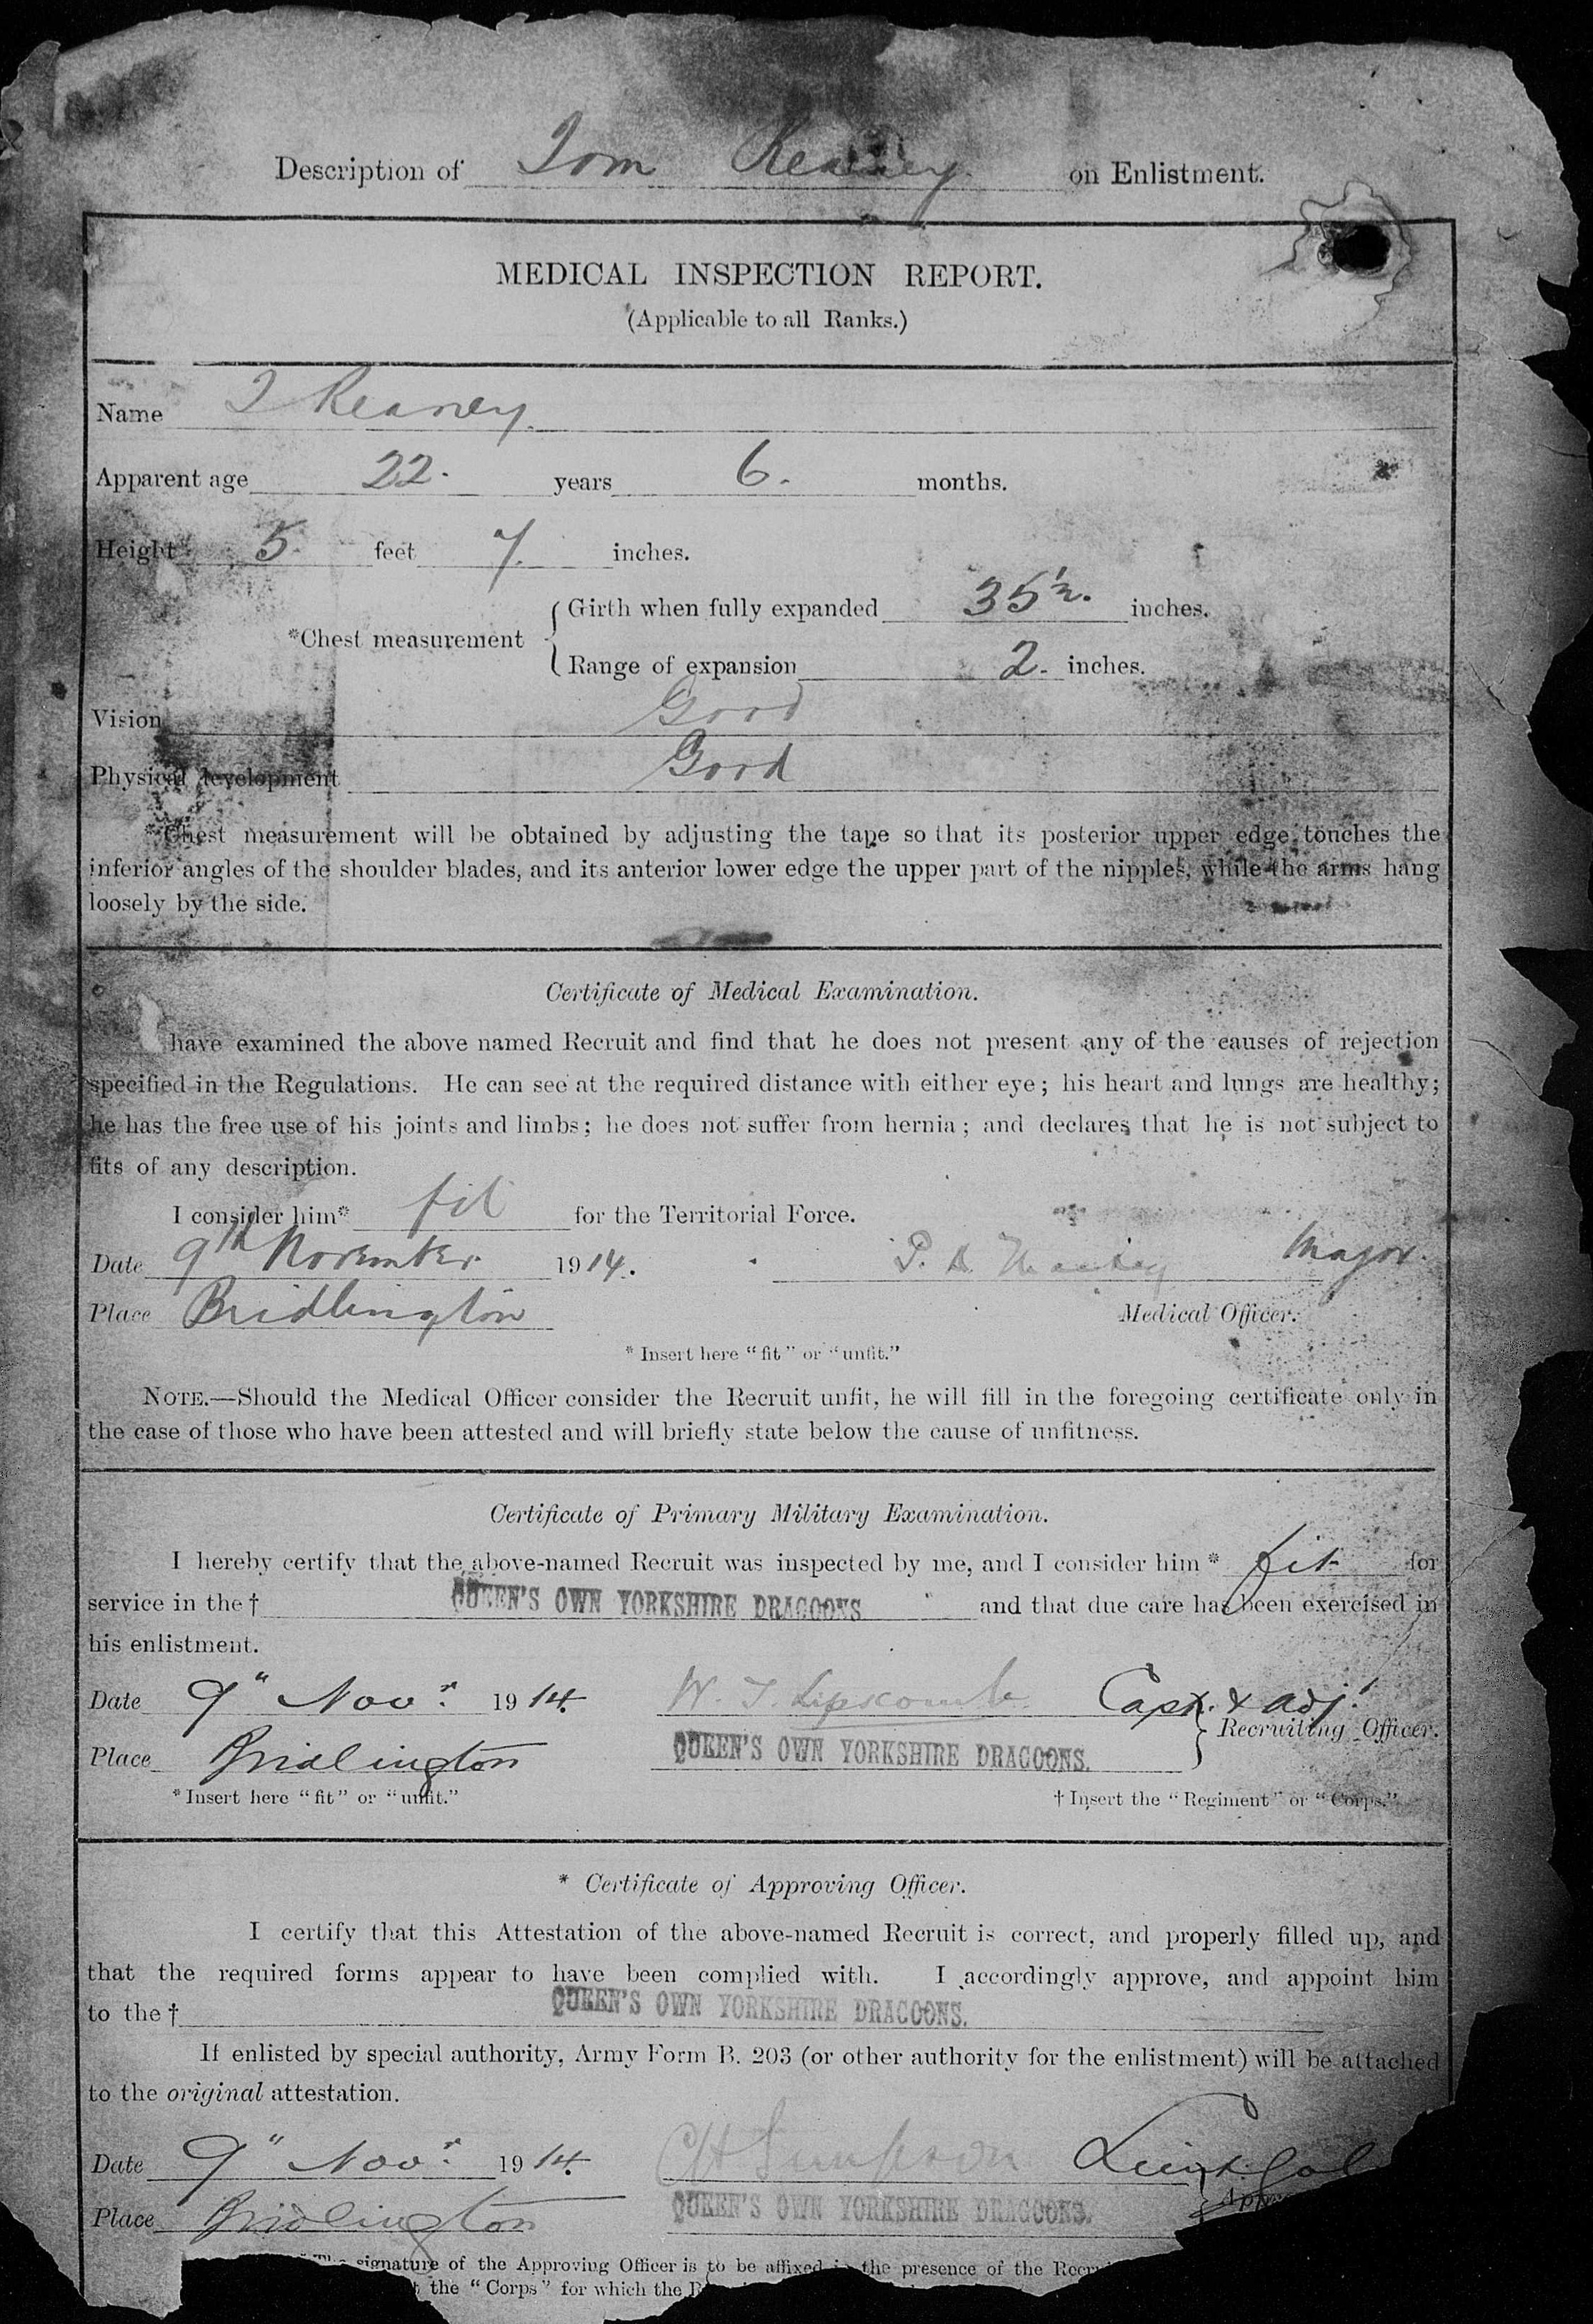 Description of Tom Reaney on Enlistment.
MEDICAL INSPECTION REPORT.
(Applicable to all Ranks.)
Name T Reaney.
Apparent age 22. years 6. months.
Height 5. feet 7. inches.
*Chest measurement { Girth when fully expanded 35 1/2. inches.
Range of expansion 2. inches.
Vision Good
Physical development Good
*Chest measurement will be obtained by adjusting the tape so that its posterior upper edge touches the
inferior angles of the shoulder blades, and its anterior lower edge the upper part of the nipples, while the arms hang
loosely by the side.
Certificate of Medical Examination.
have examined the above named Recruit and find that he does not present any of the causes of rejection
specified in the Regulations. He can see at the required distance with either eye; his heart and lungs are healthy;
he has the free use of his joints and limbs; he does not suffer from hernia; and declares that he is not subject to
fits of any description.
I consider him* fit for the Territorial Force.
Date 9th November 1914. Major.
Place Bridlington Medical Officer.
* Insert here "fit" or "unfit."
NOTE.—Should the Medical Officer consider the Recruit unfit, he will fill in the foregoing certificate only in
the case of those who have been attested and will briefly state below the cause of unfitness.
Certificate of Primary Military Examination.
I hereby certify that the above-named Recruit was inspected by me, and I consider him * fit for
service in the † QUEEN'S OWN YORKSHIRE DRAGOONS and that due care has been exercised in
his enlistment.
Date 9" Novr. 1914. W. T. Lipscomb Capt. & Adj.
Recruiting Officer.
Place Bridlington QUEEN'S OWN YORKSHIRE DRAGOONS.
* Insert here "fit" or "unfit." † Insert the "Regiment" or "Corps."
* Certificate of Approving Officer.
I certify that this Attestation of the above-named Recruit is correct, and properly filled up, and
that the required forms appear to have been complied with. I accordingly approve, and appoint him
to the † QUEEN'S OWN YORKSHIRE DRAGOONS.
If enlisted by special authority, Army Form B. 203 (or other authority for the enlistment) will be attached
to the original attestation.
Date 9" Novr. 1914. Simpson Lieut Col
Place Bridlington QUEEN'S OWN YORKSHIRE DRAGOONS.
signature of the Approving Officer is to be affixed in the presence of the
the "Corps" for which the